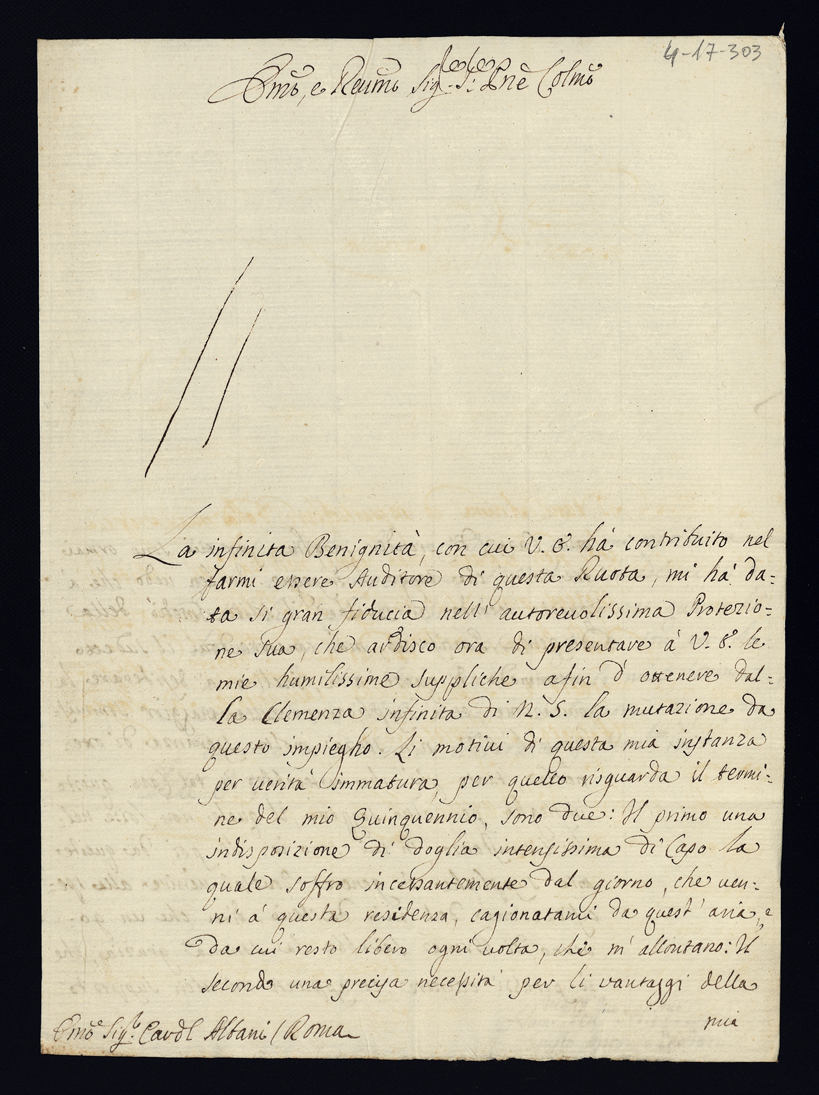 4-17-303
Emo, e Reumo Sig.r Sig.r Pñe Colmo
La infinita Benignità, con cui V. E. hà contribuito nel
farmi essere Auditore di questa Ruota, mi hà da=
ta si gran fiducia nell' autoreuolissima Protezio=
ne sua, che ardisco ora di presentare à V. E. le
mie humilissime suppliche afin d' ottenere dal=
la Clemenza infinita di N. S. la mutazione da
questo impiegho. Li motiui di questa mia instanza
per uerità immatura, per quello risguarda il termi=
ne del mio Quinquennio, sono due: Il primo una
indisposizione di doglia intensissima di Capo la
quale soffro incessantemente dal giorno, che uen=
ni à questa residenza, cagionatami da quest' aria, e
da cui resto libero ogni uolta, che m' allontano: Il
secondo una precisa necessità per li vantaggi della
mia
Emo Sig.r Cardl Albani / Roma